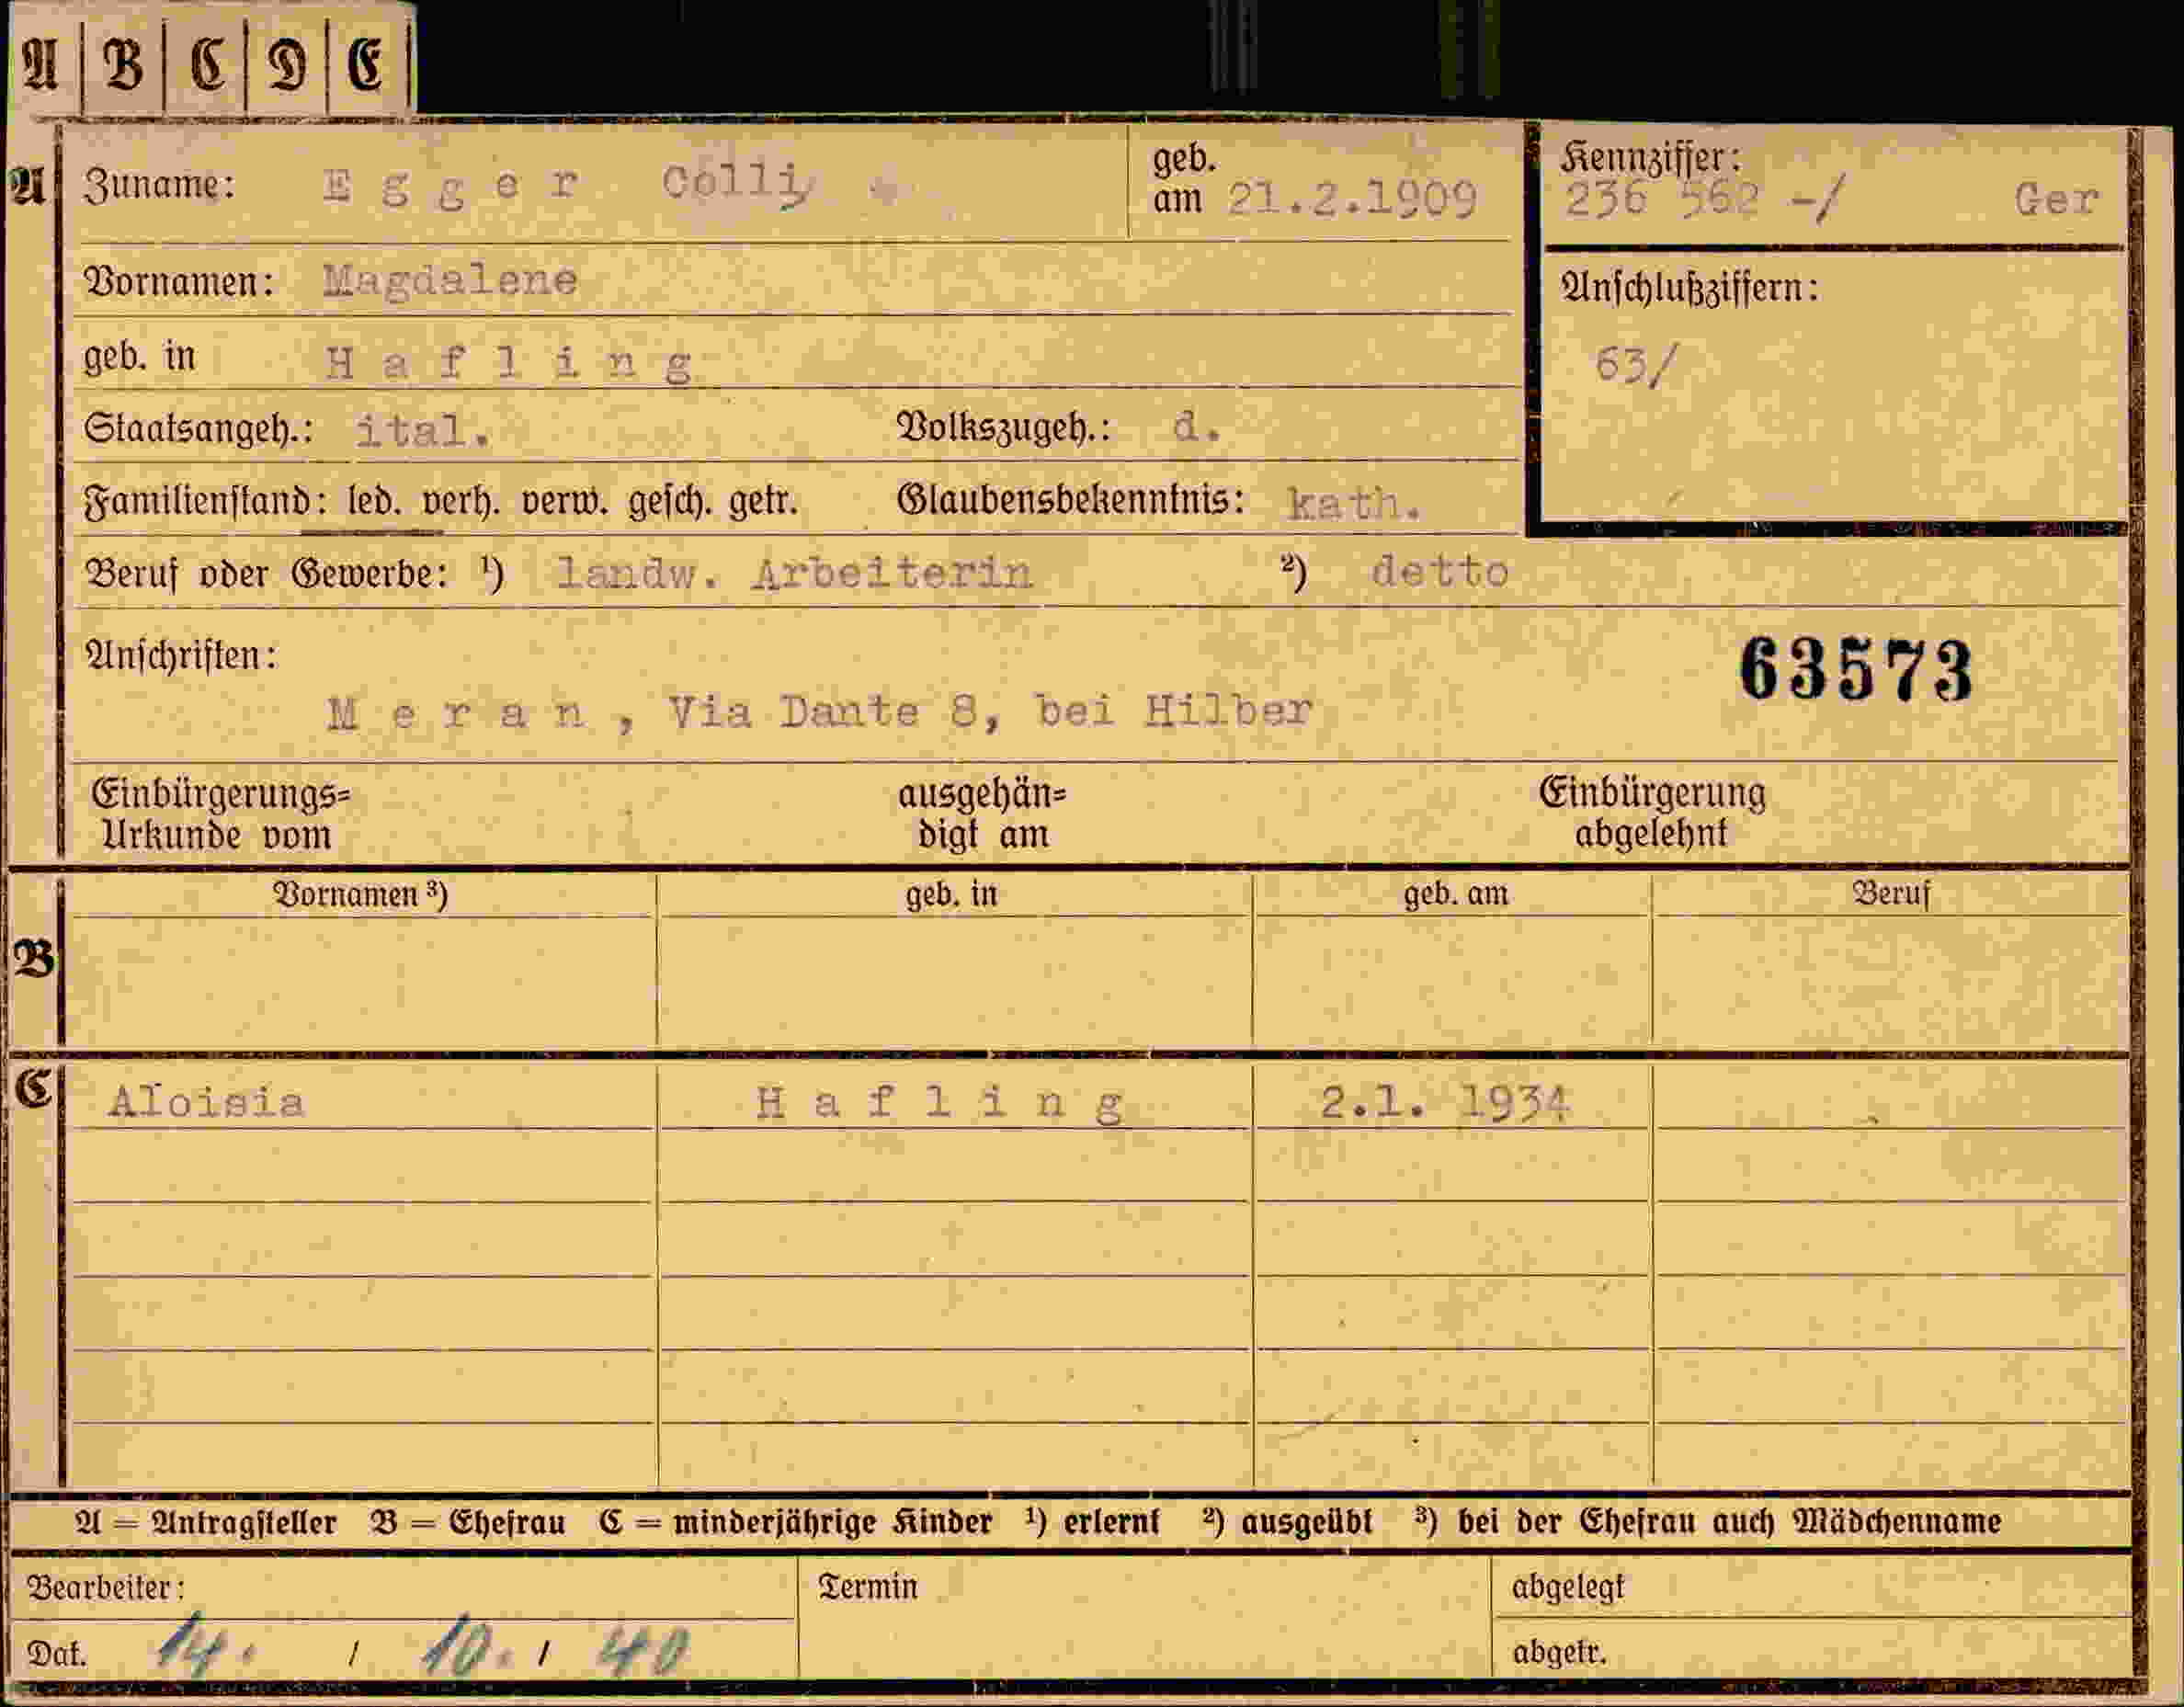 A B C D E
A Zuname: Egger Colli geb. am 21.2.1909 Kennziffer: 236 562 -/ Ger
Vornamen: Magdalene Anschlußziffern:
geb. in Hafling 63/
Staatsangeh.: ital. Volkszugeh.: d.
Familienstand: led. verh. verw. gesch. getr. Glaubensbekenntnis: kath.
Beruf oder Gewerbe: ¹) landw. Arbeiterin ²) detto
Anschriften: 63573
Meran, Via Dante 8, bei Hilber
Einbürgerungs= ausgehän= Einbürgerung
Urkunde vom digt am abgelehnt
Vornamen ³) geb. in geb. am Beruf
B
C Aloisia Hafling 2.1. 1934
A = Antragsteller B = Ehefrau C = minderjährige Kinder ¹) erlernt ²) ausgeübt ³) bei der Ehefrau auch Mädchenname
Bearbeiter: Termin abgelegt
Dat. 14. / 10. / 40 abgetr.